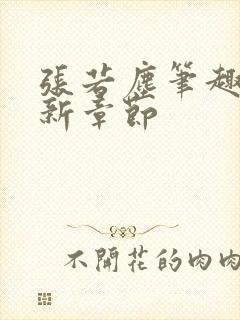 張若塵筆趣
新章節
不開花的肉肉